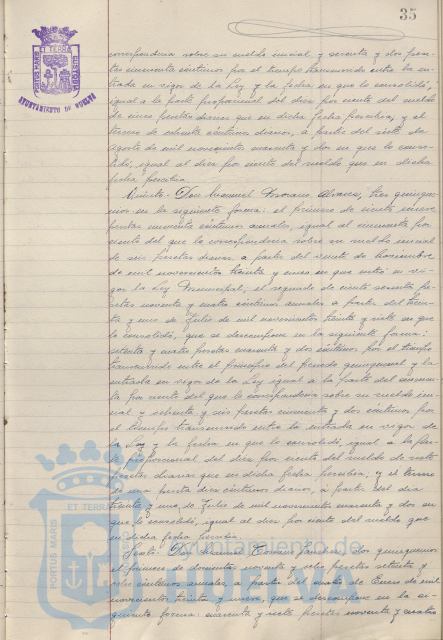 35
PORTUS MARIS ET TERRAE CUSTODIA
AYUNTAMIENTO DE HUELVA
correspondería sobre su sueldo inicial y setenta y dos pese-
tas cincuenta céntimos por el tiempo transcurrido entre la en-
trada en vigor de la Ley y la fecha en que lo consolidó,
igual a la parte proporcional del diez por ciento del sueldo
de pesetas diarias que en dicha fecha percibía, y el
tercero de céntimos diarios, a partir del siete de
Agosto de mil novecientos cuarenta y dos en que lo conso-
lidó, igual al diez por ciento del sueldo que en dicha
fecha percibía.
Quinto.- Don Manuel Alvarez, tres quinque-
nios en la siguiente forma: el primero de ciento
pesetas cincuenta céntimos anuales, igual al cincuenta por
ciento del que le correspondería sobre su sueldo inicial
de seis pesetas diarias a partir del veinte de Noviembre
de mil novecientos treinta y cinco en que entró en vi-
gor la Ley Municipal, el segundo de ciento sesenta pe-
setas noventa y cuatro céntimos anuales a partir del trein-
ta y uno de Julio de mil novecientos treinta y siete en que
lo consolidó, que se descompone en la siguiente forma:
setenta y cuatro pesetas cuarenta y dos céntimos por el tiempo
transcurrido entre el principio del período quinquenal y la
entrada en vigor de la Ley igual a la parte del cincuen-
ta por ciento del que le correspondería sobre su sueldo ini-
cial y ochenta y seis pesetas cincuenta y dos céntimos por
el tiempo transcurrido entre la entrada en vigor de
la Ley y la fecha en que lo consolidó, igual a la par-
te proporcional del diez por ciento del sueldo de siete
pesetas diarias que en dicha fecha percibía; y el tercero
de una peseta diez céntimos diarios, a partir del día
treinta y uno de Julio de mil novecientos cuarenta y dos en
que lo consolidó, igual al diez por ciento del sueldo que
en dicha fecha percibía.
Sexto.- Don Manuel Romero Sánchez, dos quinquenios
el primero de doscientas noventa y ocho pesetas setenta y
ocho céntimos anuales, a partir del cuatro de Enero de mil
novecientos treinta y nueve, que se descompone en la si-
guiente forma: cuarenta y siete pesetas noventa y cuatro
PORTUS MARIS ET TERRAE
Ayuntamiento de